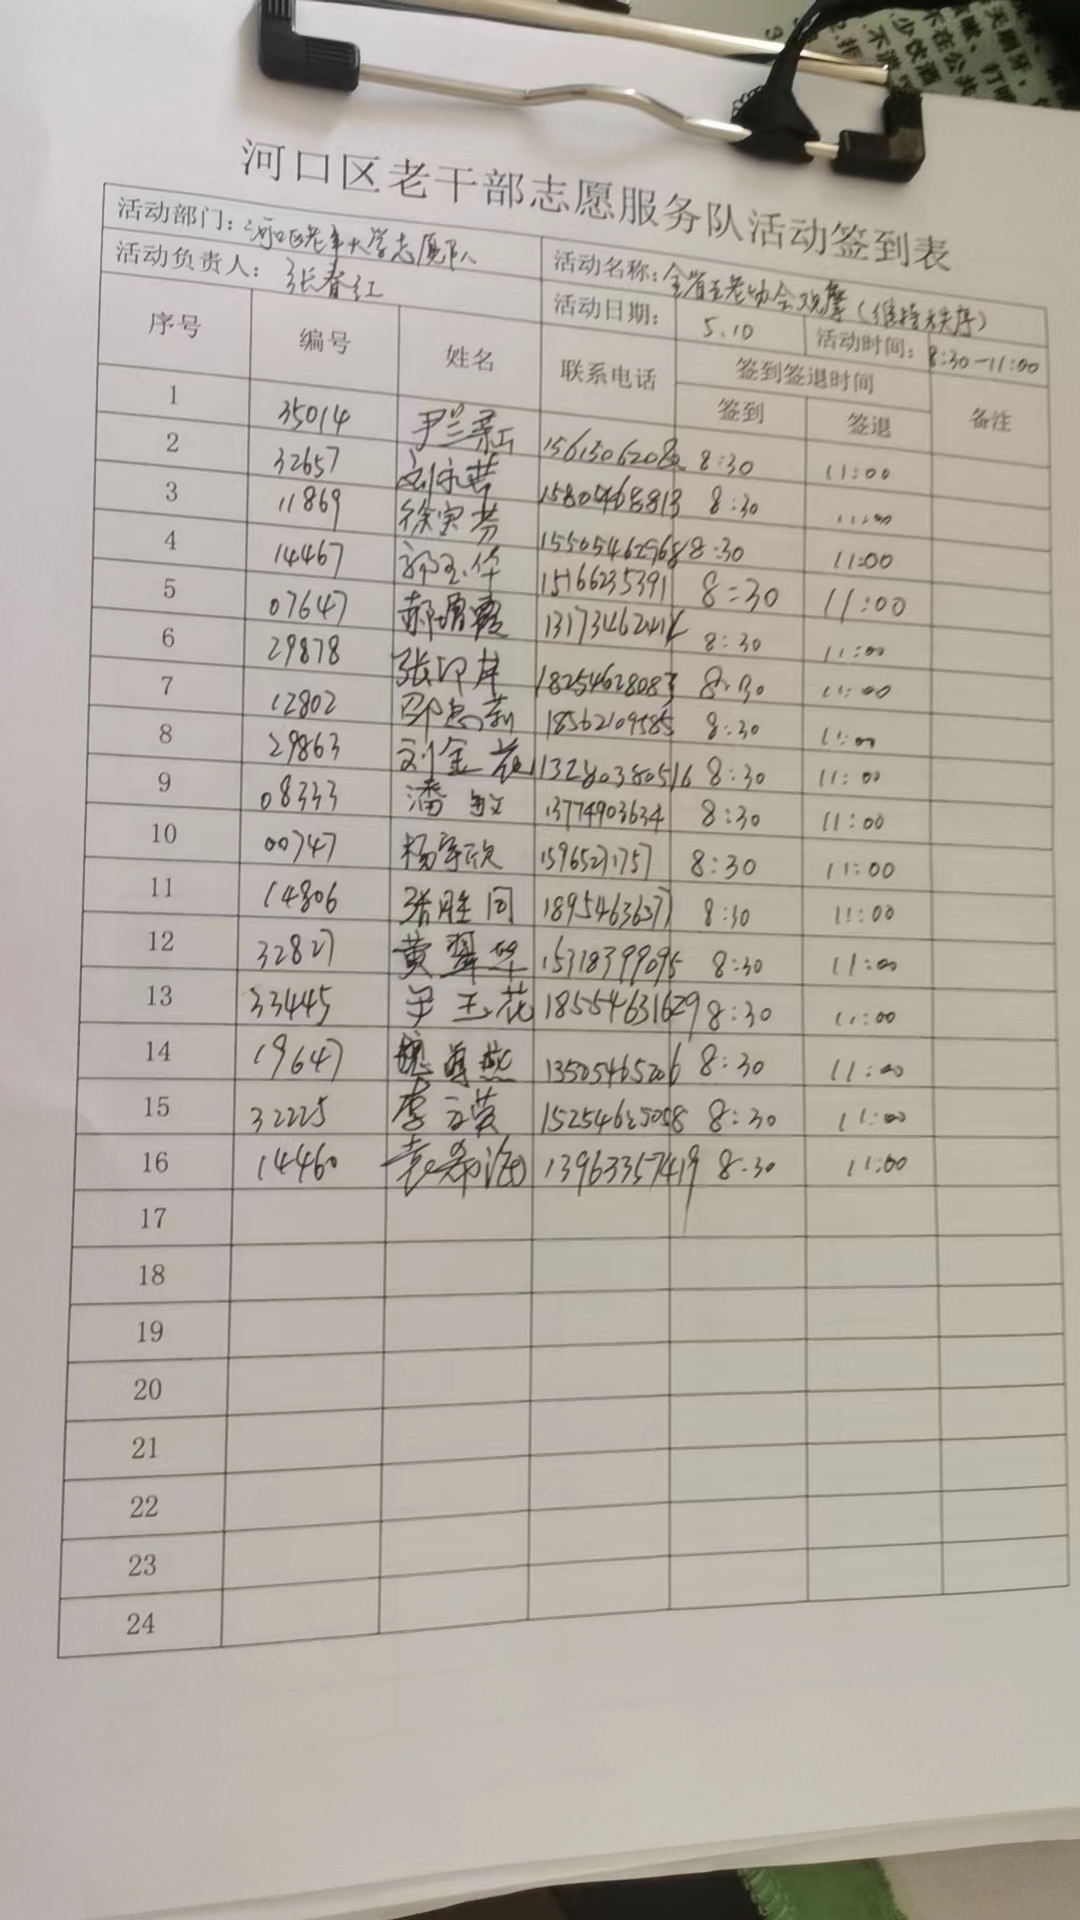 河口区老干部志愿服务队活动签到表
活动部门：河口区老年大学志愿队 活动名称：全省五老协会观摩（维持秩序）
活动负责人：张春红 活动日期：5.10 活动时间：8:30-11:00
序号 编号 姓名 联系电话 签到签退时间 备注
签到 签退
1 35014 8:30 11:00
2 32657 刘永芸 8:30 11:00
3 11869 徐寅芳 8:30 11:00
4 14467 郭玉华 15166235391 8:30 11:00
5 07647 郝眉霞 8:30 11:00
6 29878 张印岸 18254628083 8:30 11:00
7 12802 18562109585 8:30 11:00
8 29863 刘金花 13280380516 8:30 11:00
9 08333 潘敏 13774903634 8:30 11:00
10 00747 杨宇欣 15965271757 8:30 11:00
11 14806 张胜同 18954636377 8:30 11:00
12 32827 黄翠华 15318399095 8:30 11:00
13 33445 玉花 18554631629 8:30 11:00
14 19647 13505465206 8:30 11:00
15 32225 李立英 15254625058 8:30 11:00
16 14460 袁希 13963357419 8:30 11:00
17
18
19
20
21
22
23
24